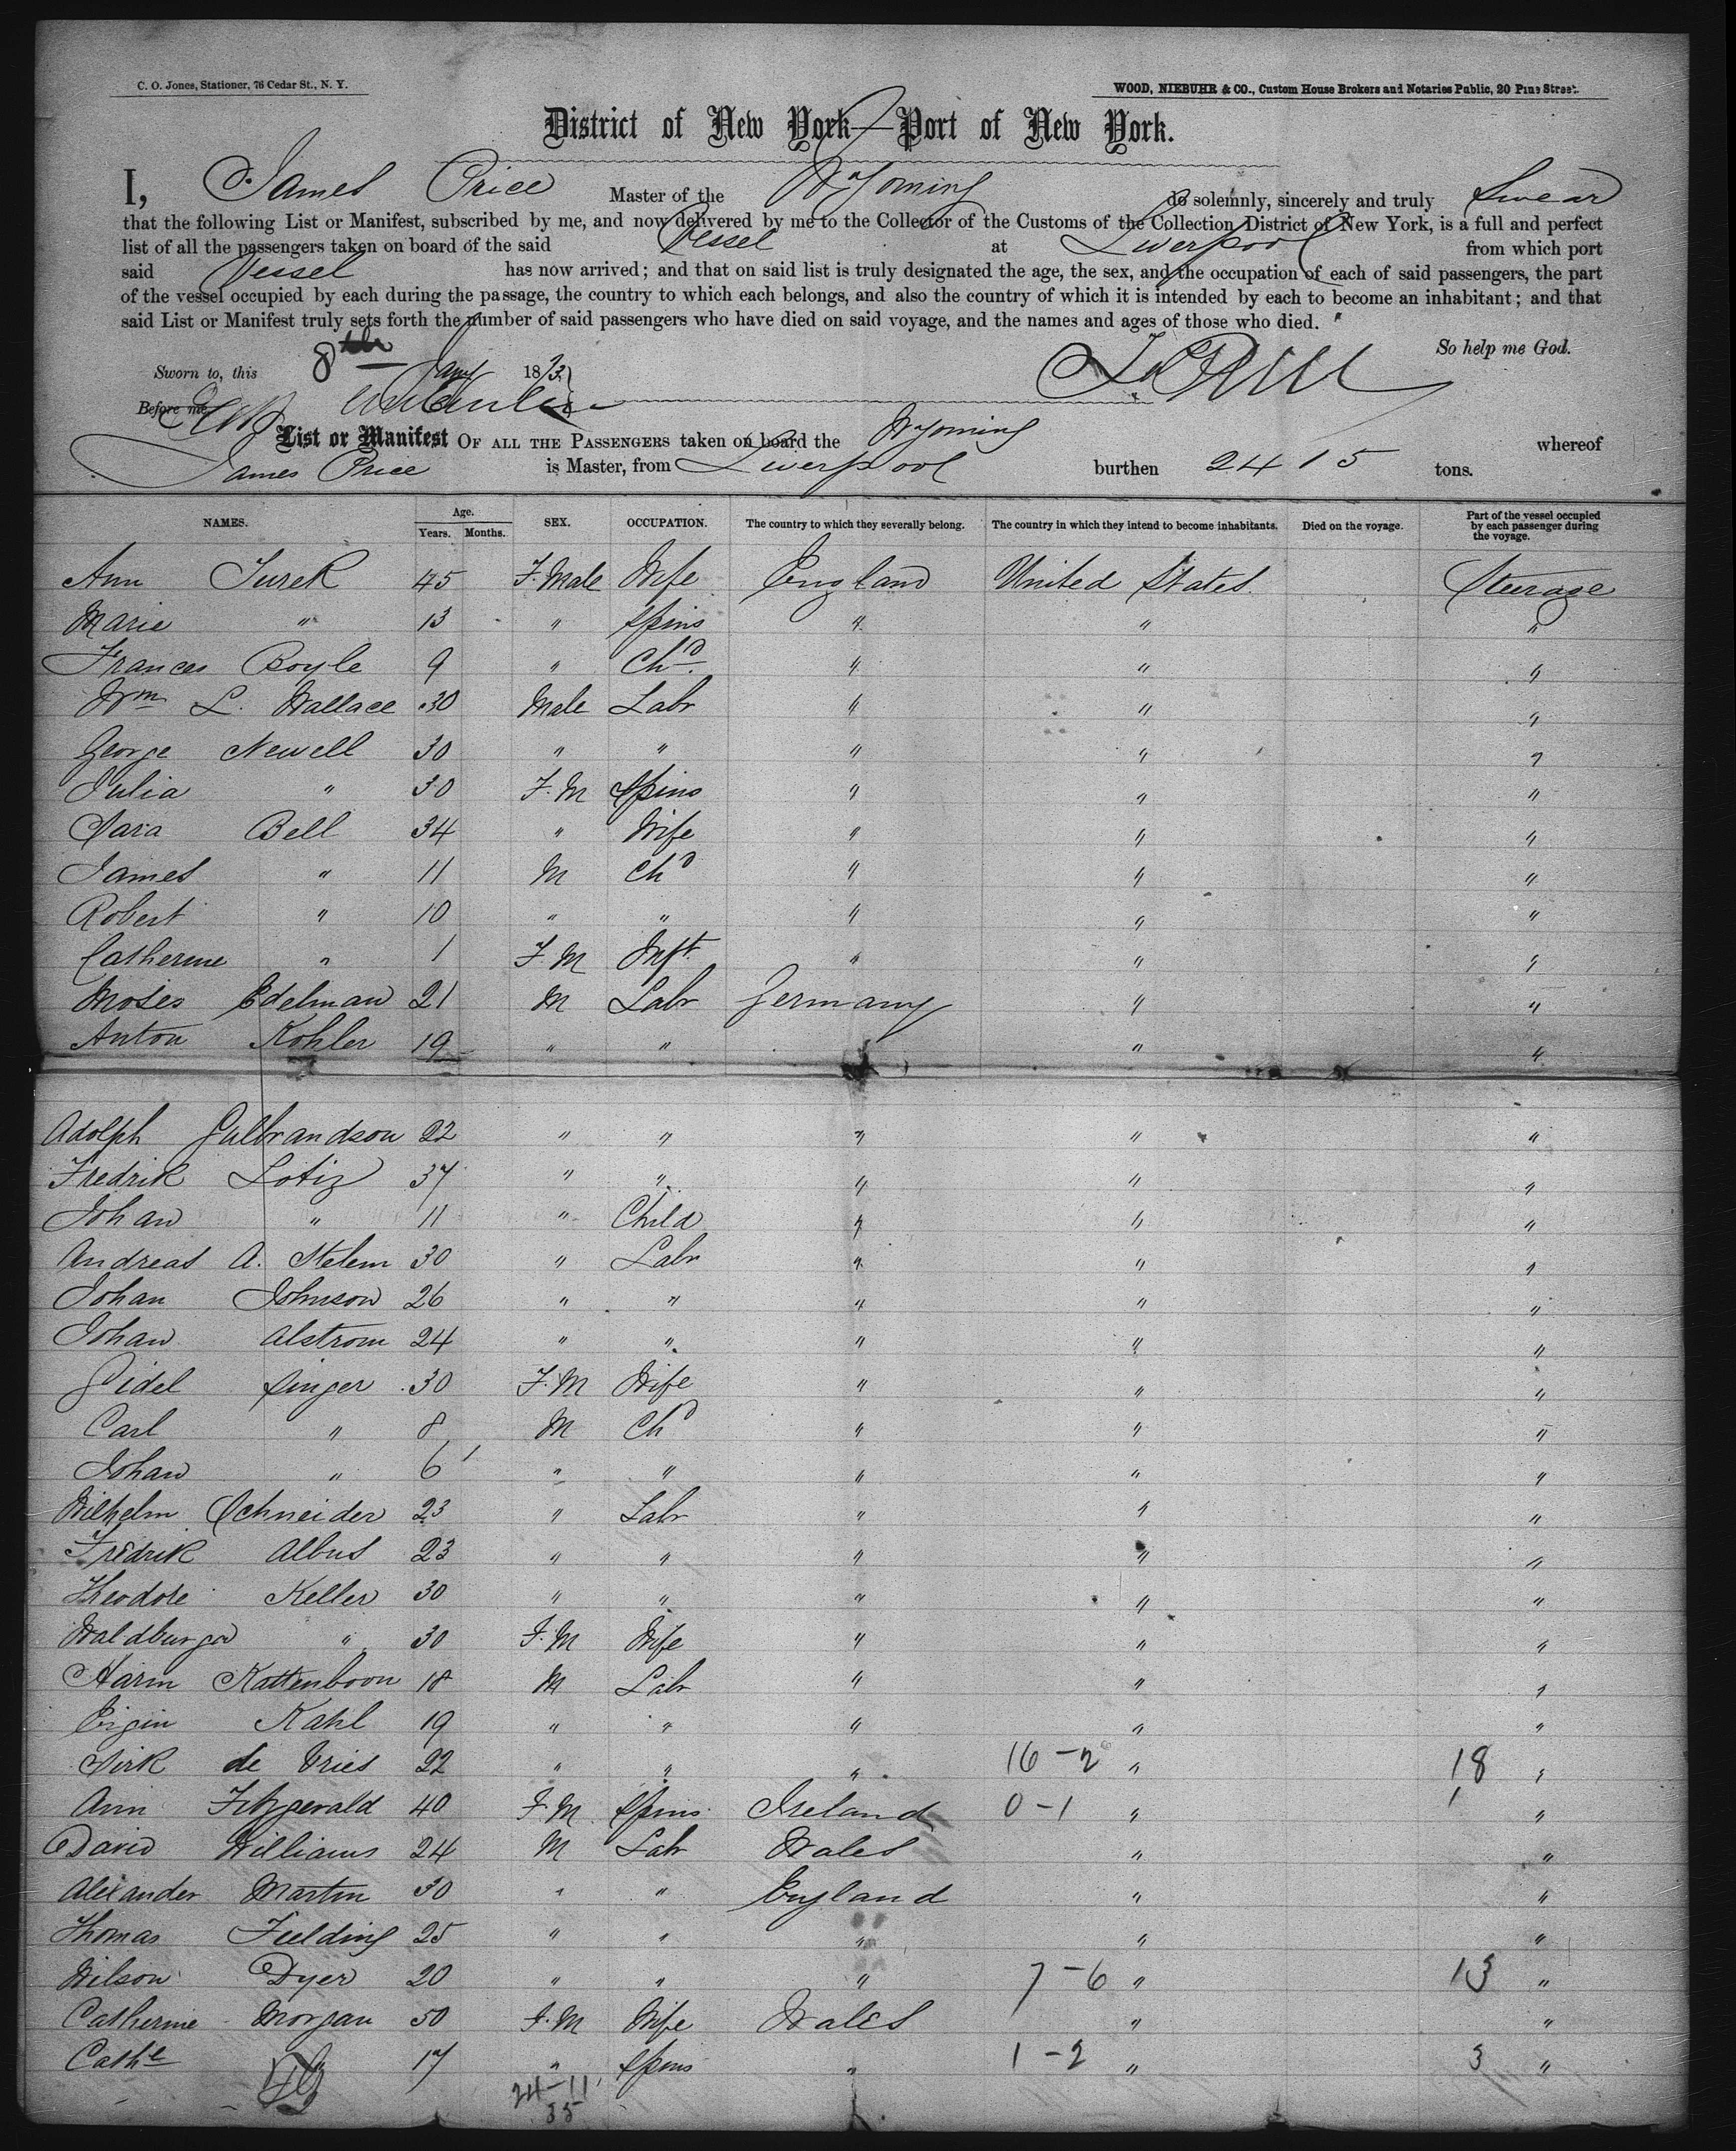 C. O. Jones, Stationer, 76 Cedar St., N. Y.
WOOD, NIEBUHR & CO., Custom House Brokers and Notaries Public, 20 Pine Street.
District of New York—Port of New York.
I, James Price Master of the Wyoming do solemnly, sincerely and truly Swear
that the following List or Manifest, subscribed by me, and now delivered by me to the Collector of the Customs of the Collection District of New York, is a full and perfect
list of all the passengers taken on board of the said Vessel at Liverpool from which port
said Vessel has now arrived; and that on said list is truly designated the age, the sex, and the occupation of each of said passengers, the part
of the vessel occupied by each during the passage, the country to which each belongs, and also the country of which it is intended by each to become an inhabitant; and that
said List or Manifest truly sets forth the number of said passengers who have died on said voyage, and the names and ages of those who died.
So help me God.
Sworn to, this 8th Jany 1883
Before me
List or Manifest OF ALL THE PASSENGERS taken on board the Wyoming whereof
James Price is Master, from Liverpool burthen 2415 tons.
NAMES. Age. Years. Months. SEX. OCCUPATION. The country to which they severally belong. The country in which they intend to become inhabitants. Died on the voyage. Part of the vessel occupied by each passenger during the voyage.
Ann Turek 45 F. Male Wife England United States. Steerage
Marie " 13 " Spins " " "
Frances Boyle 9 " Chd. " " "
Wm L. Wallace 30 Male Labr " " "
George Newell 30 " " " " "
Julia " 30 F. M Spins " " "
Sara Bell 34 " Wife " " "
James " 11 M Chd " " "
Robert " 10 " " " " "
Catherine " 1 F. M Inft " " "
Moses Edelman 21 M Labr Germany " "
Anton Kohler 19 " " " "
Adolph Gulbrandson 22 " " " " "
Fredrik Lotiz 37 " " " " "
Johan " 11 " Child " " "
Andreas A. Stelem 30 " Labr " " "
Johan Johnson 26 " " " " "
Johan Alstrom 24 " " " " "
Gidel Singer 30 F. M Wife " " "
Carl " 8 M Chd " " "
Johan " 6 " " " " "
Wilhelm Schneider 23 " Labr " " "
Fredrik Albus 23 " " " " "
Theodore Keller 30 " " " " "
Waldburga " 30 F. M Wife " " "
Harm Kattenboon 18 M Labr " " "
Kahl 19 " " " " "
Dirk de Vries 22 " " " 16-2 " 18 "
Ann Fitzgerald 40 F. M Spins Ireland 0-1 " 1 "
David Williams 24 M Labr Wales " "
Alexander Martin 30 " " England " "
Thomas Fielding 25 " " " " "
Wilson Dyer 20 " " " 7-6 " 13 "
Catherine Morgan 50 F. M Wife Wales " "
Cathe " 17 " Spins " 1-2 " 3 "
24-11
35